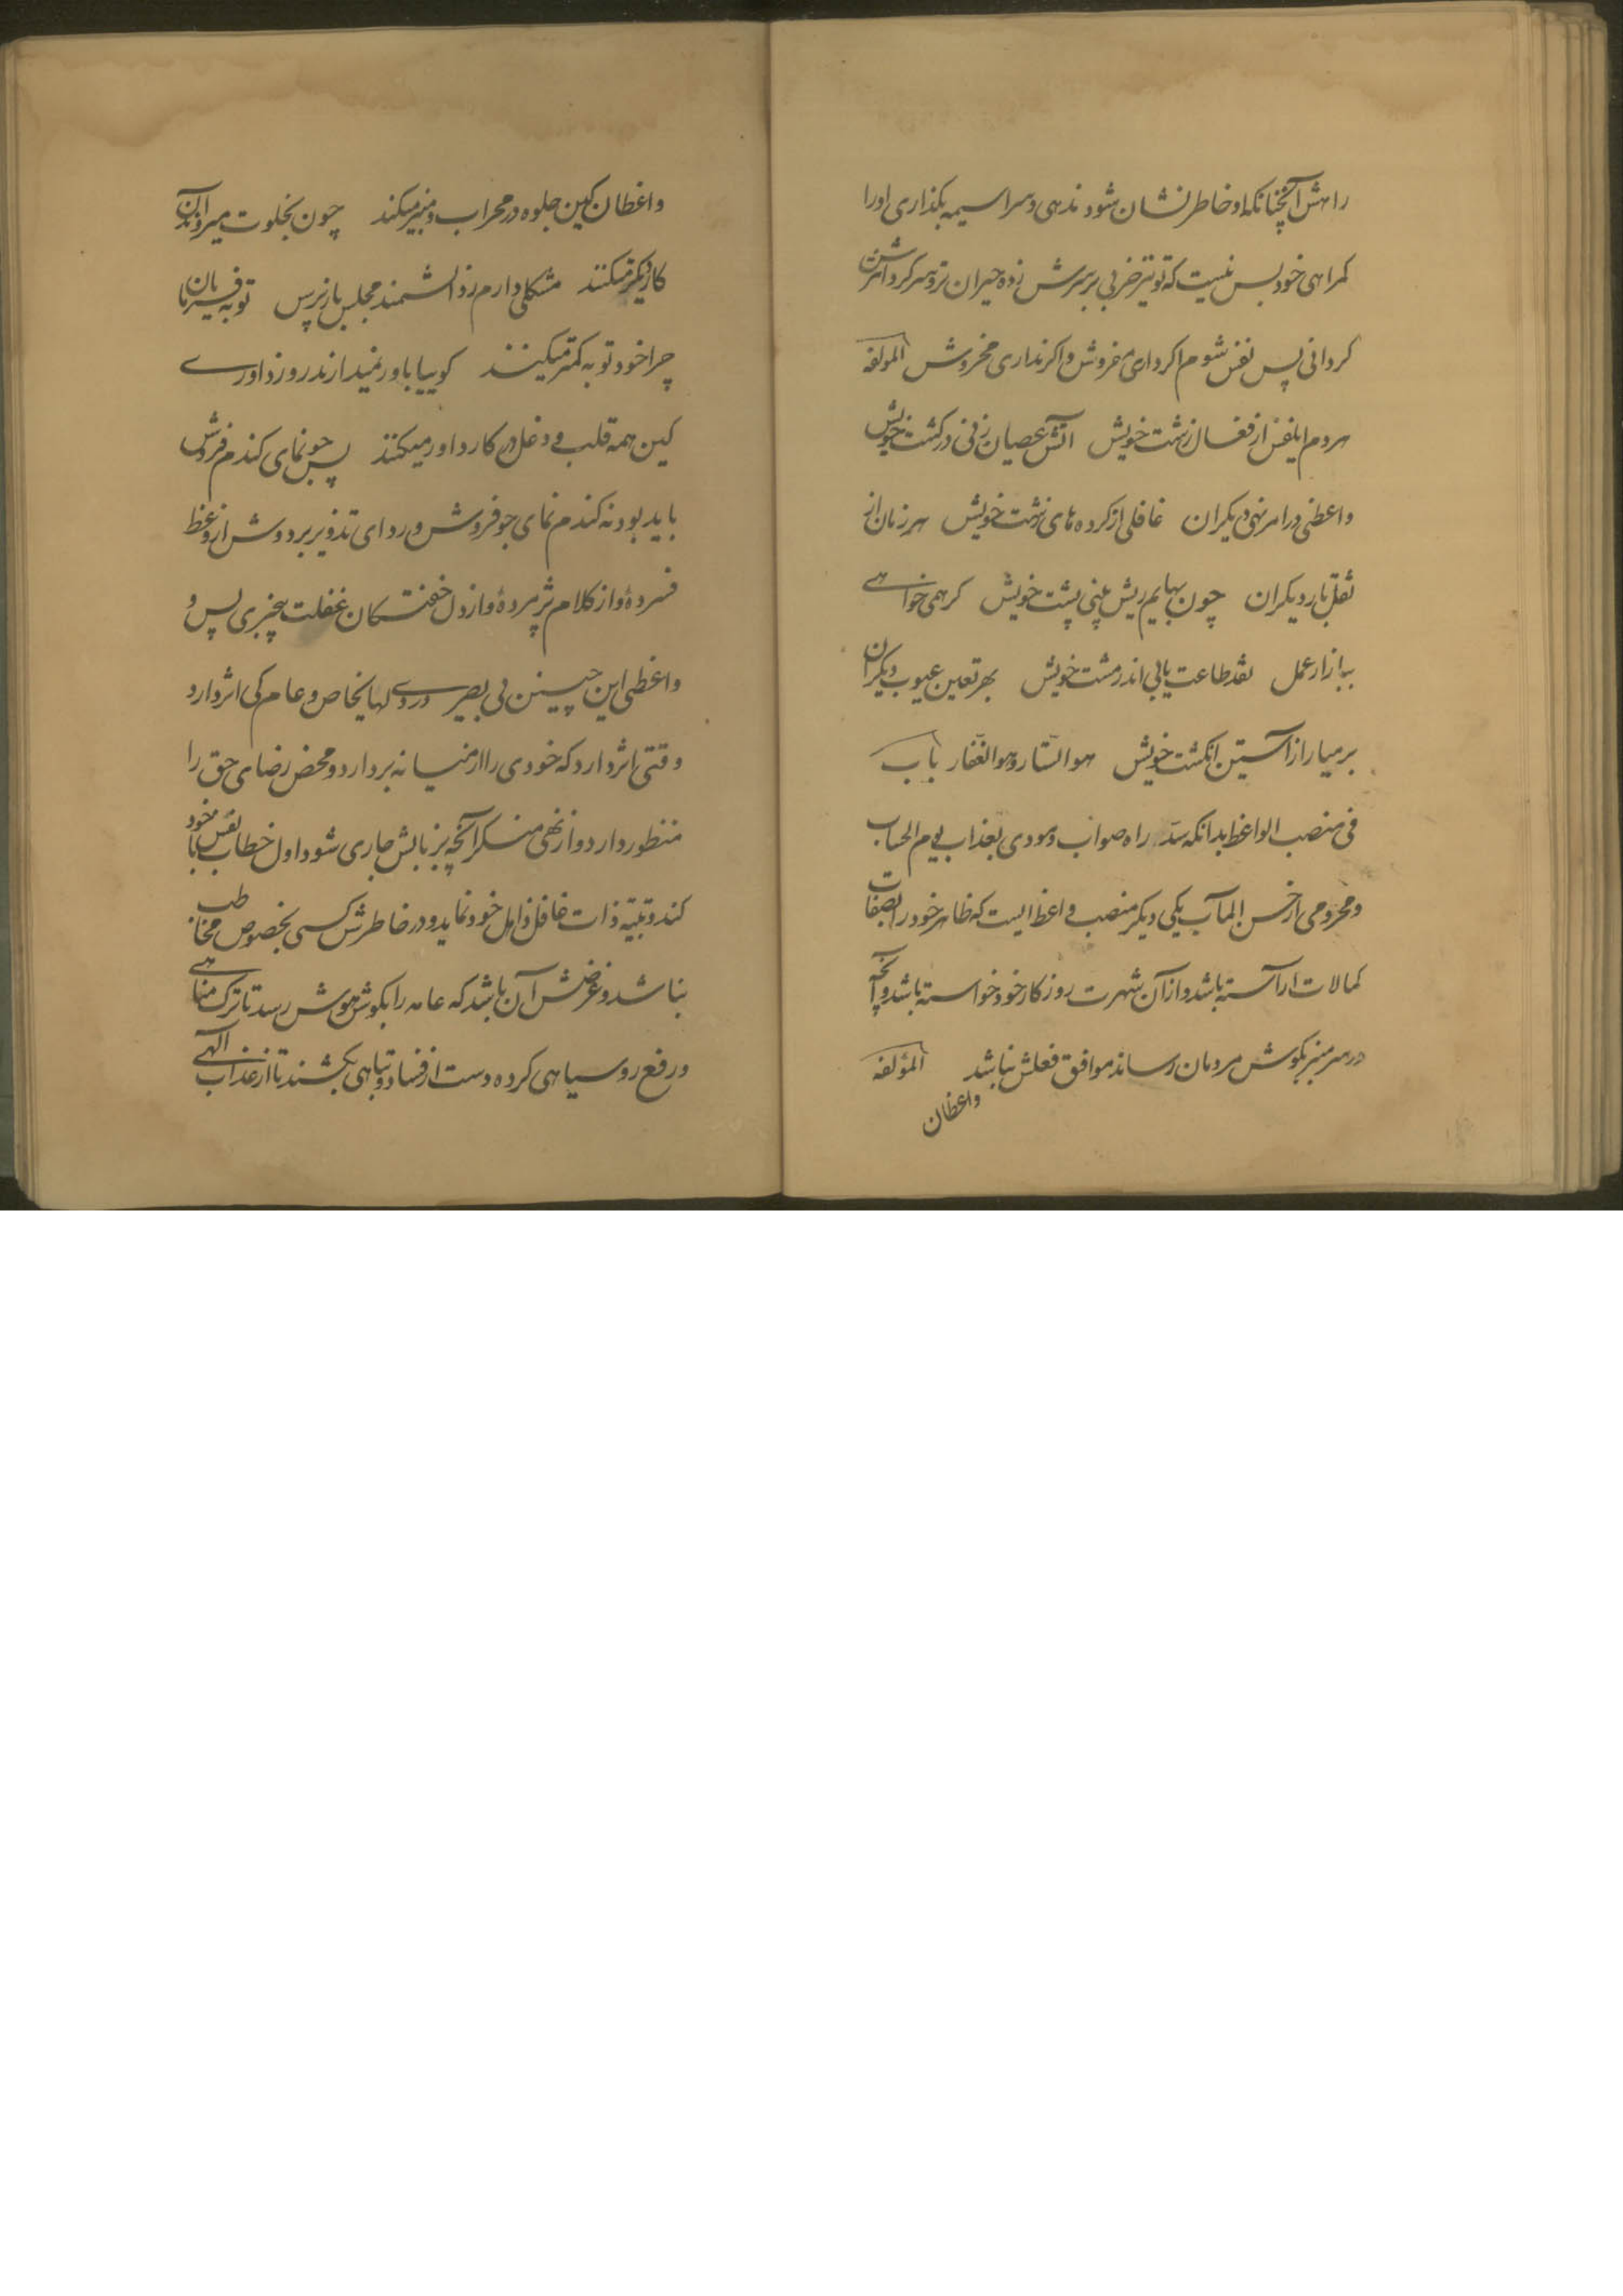 راهش آنچنانکه او خاطرنشان شود ندهی و سراسیمه بگذاری او را
گمراهی خود بس نیست که تو نیز ضربی بر سرش زده حیران تر و سرگردان‌ترش
گردانی پس نفس شوم اگر داری مفروش و اگر نداری مخروش لمؤلفه
هر دم ایفس از فعال زشت خویش آتش عصیان زنی در کشت خویش
واعظی در امر نهی دیگران غافلی از کرده های زشت خویش هر زمان از
ثقل بار دیگران چون بهایم ریش بینی پشت خویش گر همی خواهی
ببازار عمل نقد طاعت یابی اندر مشت خویش بهر تعین عیوب دیگران
بر میار از آستین انگشت خویش هو الستار و هو الغفار باب
فی منصب الواعظ بدانکه سد راه صواب و مودی بعذاب یوم الحساب
و محرومی از حسن المآب یکی دیگر منصب واعظ ایست که ظاهر خود را بصفات
کمالات آراسته باشد و از آن شهرت روزگار خود خواسته باشد و آنچه
در سر منبر بگوش مردمان رساند موافق فعلش نباشد لمؤلفه
واعظان
واعظان کین جلوه در محراب و منبر میکند چون بخلوت میروند آن
کار دیگر میکنند مشکلی دارم ز دانشمند مجلس باز پرس توبه فرمایان
چرا خود توبه کمتر میکنند گوییا باور نمیدارند روز داوری
کین همه قلب و دغل در کار داور میکنند پس جو نمای گندم فروش
باید بود نه گندم نمای جو فروش و ردای تذویر بر دوش از وعظ
فسردهٔ و از کلام پژمردهٔ و از دل خفتگان غفلت بیخبری پس و
واعظی این چنین بی بصیر در دلها بخاص و عام کی اثر دارد
وقتی اثر دارد که خودی را از میانه بردارد و محض رضای حق را
منظور دارد و از نهی منکر آنچه بزبانش جاری شود اول خطاب با نفس خود
کند و تنبیه ذات غافل ذاهل خود نماید و در خاطرش کسی بخصوص مخاطب
نباشد و غرضش آن باشد که عامه را بگوش هوش رسد تا ترک مناهی
و رفع روسیاهی کرده دست از فساد و تباهی بکشند تا از عذاب الهی